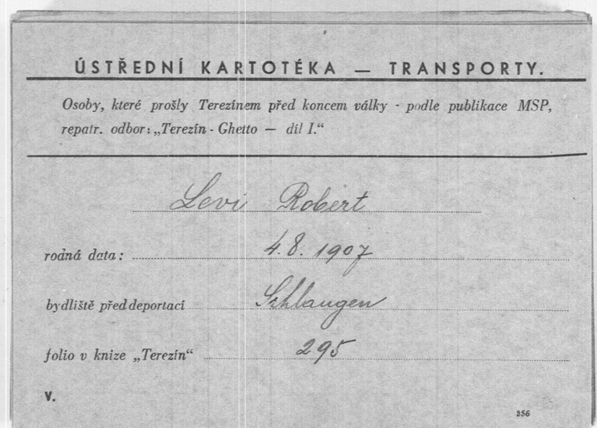 ÚSTŘEDNÍ KARTOTÉKA — TRANSPORTY.
Osoby, které prošly Terezínem před koncem války - podle publikace MSP,
repatr. odbor: „Terezín - Ghetto — díl I.“
Levi Robert
rodná data: 4.8.1907
bydliště před deportací Schlangen
folio v knize „Terezín“ 295
V.
256